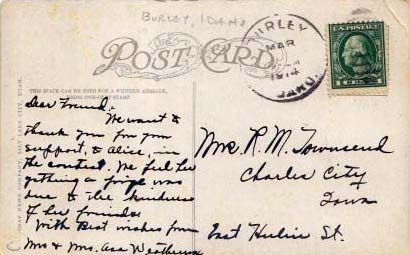 BURLEY, IDAHO
POST CARD
THIS SPACE CAN BE USED FOR A WRITTEN MESSAGE,
BURLEY
MAR
1914
IDAHO.
Dear Friend:
We want to
thank you for your
support, to Alice, in
the contest. We feel her
getting a prize was
due to the kindness
of her friends
With Best wishes from
Mrs & Mrs. Asa
Mrs R. M. Townsend
Charles City
Iowa
East Hulin St.